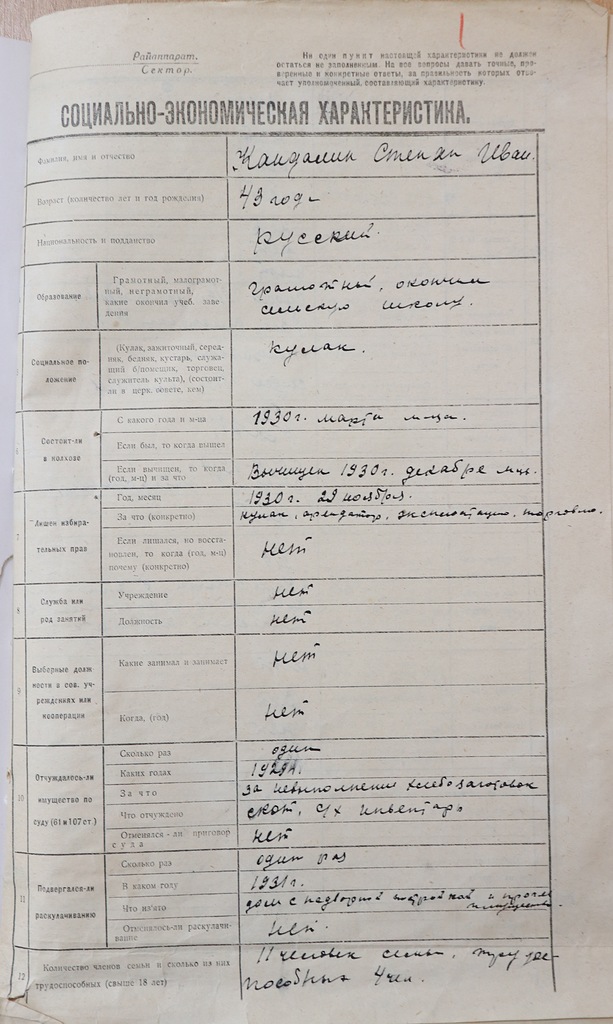 Райаппарат.
Сектор.
Ни один пункт настоящей характеристики не должен
остаться не заполненным. На все вопросы давать точные, про-
веренные и конкретные ответы, за правильность которых отве-
чает уполномоченный, составляющий характеристику.
СОЦИАЛЬНО-ЭКОНОМИЧЕСКАЯ ХАРАКТЕРИСТИКА.
Фамилия, имя и отчество
Степан Иван.
Возраст (количество лет и год рождения)
43 года
Национальность и подданство
русский.
Образование
Грамотный, малограмот-
ный, неграмотный,
какие окончил учеб. заве-
дения
грамотный, окончил
сельскую школу.
Социальное по-
ложение
(Кулак, зажиточный, серед-
няк, бедняк, кустарь, служа-
щий б/помещик, торговец,
служитель культа), (состоит-
ли в церк. совете, кем)
кулак.
Состоит-ли
в колхозе
С какого года и м-ца
1930 г. марта м-ца.
Если был, то когда вышел
Если вычищен, то когда
(год, м-ц) и за что
Вычищен 1930 г. декабре м-це.
7
Лишен избира-
тельных прав
Год, месяц
1930 г. 29 ноября.
За что (конкретно)
кулак, арендатор, эксплоатацию, торговлю.
Если лишался, но восста-
новлен, то когда (год, м-ц)
почему (конкретно)
нет
8
Служба или
род занятий
Учреждение
нет
Должность
нет
9
Выборные долж-
ности в сов. уч-
реждениях или
кооперации
Какие занимал и занимает
нет
Когда, (год)
нет
10
Отчуждалось-ли
имущество по
суду (61 и 107 ст.)
Сколько раз
один
Каких годах
1929 г.
За что
за невыполнение хлебозаготовок
Что отчуждено
скот, с/х инвентарь
Отменялся-ли приговор
суда
нет
11
Подвергался-ли
раскулачиванию
Сколько раз
один раз
В каком году
1931 г.
Что из'ято
дом с надворной постройкой и проч.
имущество.
Отменялось-ли раскулачи-
вание
нет.
12
Количество членов семьи и сколько из них
трудоспособных (свыше 18 лет)
11 человек семьи, трудо-
способных 4 чел.